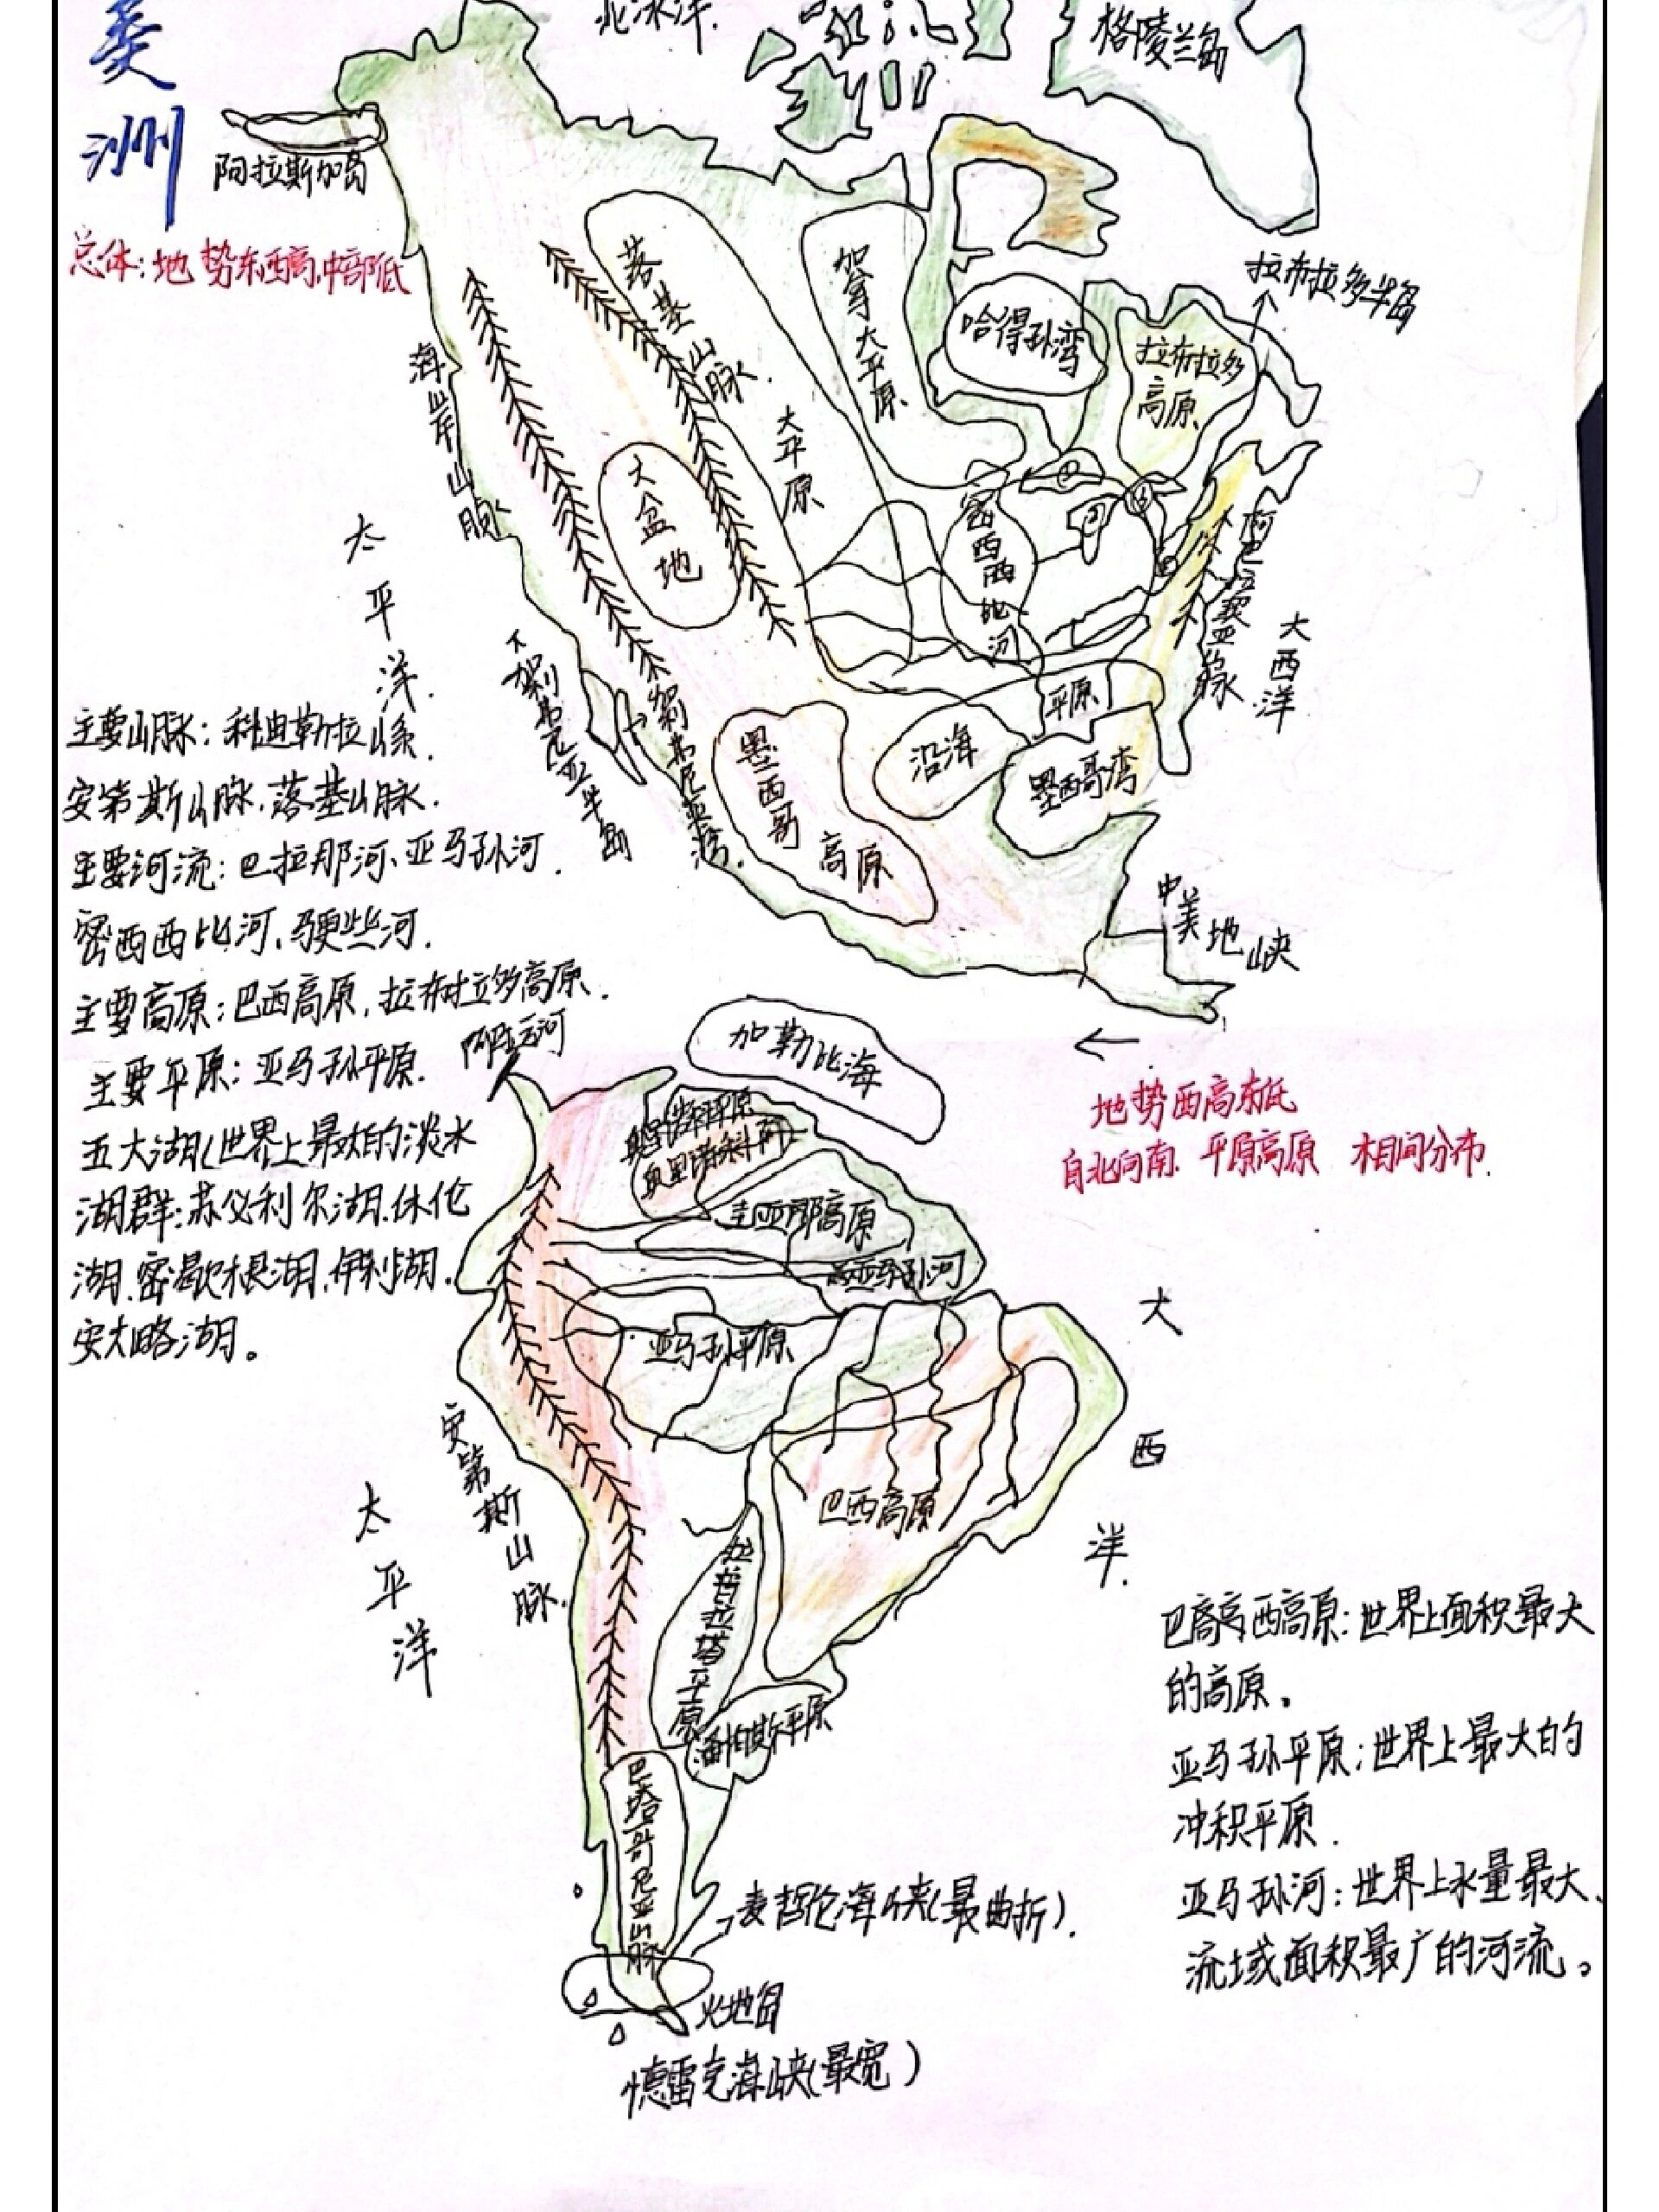 美洲
北冰洋.
格陵兰岛
阿拉斯加
总体:地势东西高,中部低
落基山脉.
加拿大平原
哈得孙湾
拉布拉多半岛
拉布拉多
高原
海岸山脉
大平原
大盆地
密西西比河
平原
阿巴拉契亚山脉
大西洋
太平洋.
下加利弗尼亚半岛
加利弗尼亚湾.
墨西哥
高原
沿海
墨西哥湾
中美地峡
主要山脉:科迪勒拉山系.
安第斯山脉.落基山脉.
主要河流:巴拉那河、亚马孙河.
密西西比河、马更些河.
主要高原:巴西高原,拉布拉多高原.
主要平原:亚马孙平原.
五大湖(世界上最大的淡水
湖群:苏必利尔湖.休伦
湖.密歇根湖.伊利湖.
安大略湖。
运河
加勒比海
地势西高东低
自北向南 平原高原 相间分布.
奥里诺科平原
奥里诺科河
圭亚那高原
亚马孙河
亚马孙平原
巴西高原
大西洋.
安第斯山脉.
太平洋
拉普拉塔平原
潘帕斯平原
巴塔哥尼亚山脉
麦哲伦海峡(最曲折).
火地岛
德雷克海峡(最宽)
西高原:世界上面积最大
的高原。
亚马孙平原:世界上最大的
冲积平原.
亚马孙河:世界上水量最大、
流域面积最广的河流。